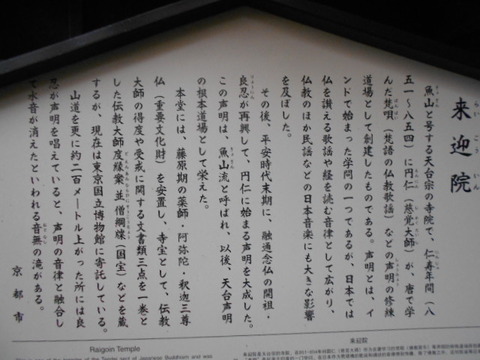 来迎院
らい ごう いん
魚山と号する天台宗の寺院で、仁寿年間（八
五一〜八五四）に円仁（慈覚大師）が、唐で学
んだ梵唄（梵語の仏教歌謡）などの声明の修練
道場として創建したものである。声明とは、イ
ンドで始まった学問の一つであるが、日本では
仏を讃える歌謡や経を読む音律として広がり、
仏教のほか民謡などの日本音楽にも大きな影響
を及ぼした。
その後、平安時代末期に、融通念仏の開祖・
良忍が再興して、円仁に始まる声明を大成した。
この声明は、魚山流と呼ばれ、以後、天台声明
の根本道場として栄えた。
本堂には、藤原期の薬師・阿弥陀・釈迦三尊
仏（重要文化財）を安置し、寺宝として、伝教
大師の得度や受戒に関する文書類三点を一巻と
した伝教大師度縁案並僧綱牒（国宝）などを蔵
するが、現在は東京国立博物館に寄託している。
山道を更に約二百メートル上がった所には良
忍が声明を唱えていると、声明の音律と融合し
て水音が消えたといわれる音無の滝がある。
京都市
Raigoin Temple
来迎院